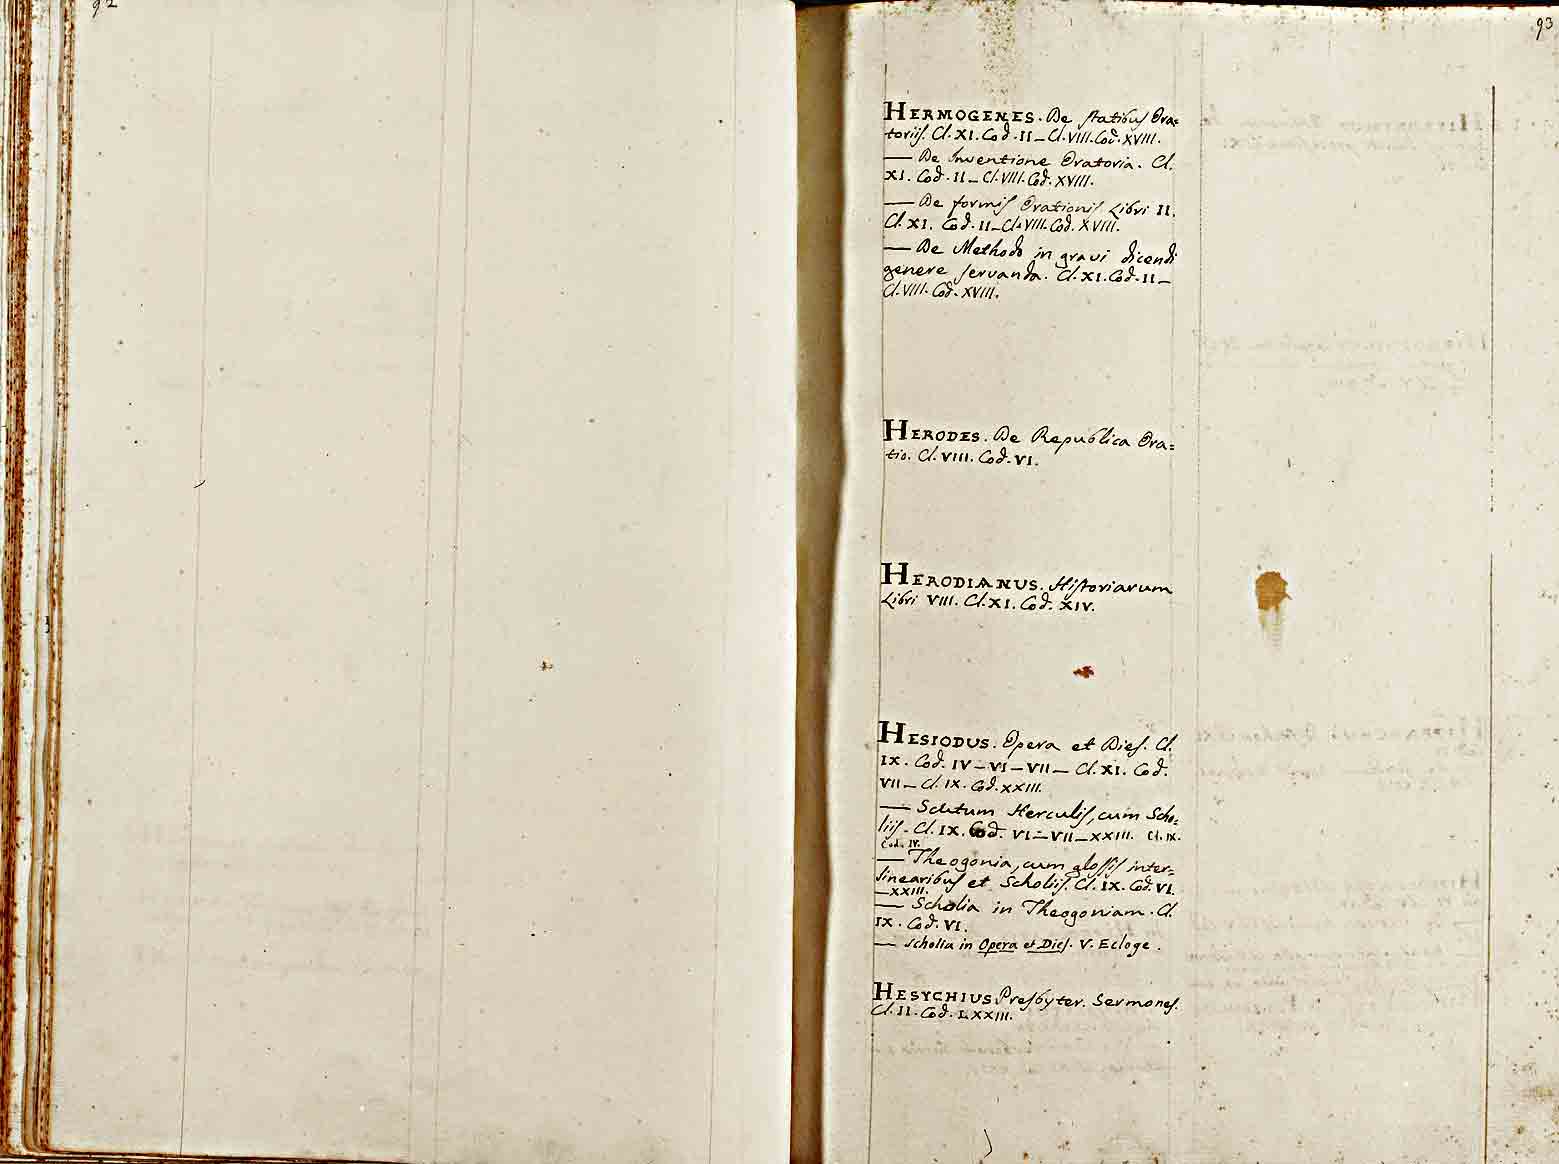 92
93
HERMOGENES. De statibus Ora=
toriis. Cl. XI. Cod. II – Cl. VIII. Cod. XVIII.
— De Inventione Oratoria. Cl.
XI. Cod. II – Cl. VIII. Cod. XVIII.
— De formis Orationis Libri II.
Cl. XI. Cod. II – Cl. VIII. Cod. XVIII.
— De Methodo in gravi dicendi
genere servanda. Cl. XI. Cod. II –
Cl. VIII. Cod. XVIII.
HERODES. De Republica Ora=
tio. Cl. VIII. Cod. VI.
HERODIANUS. Historiarum
Libri VIII. Cl. XI. Cod. XIV.
HESIODUS. Opera et Dies. Cl.
IX. Cod. IV – VI – VII – Cl. XI. Cod.
VII – Cl. IX. Cod. XXIII.
— Scutum Herculis, cum Scho=
liis. Cl. IX. Cod. VI – VII – XXIII. Cl. IX.
Cod. IV.
— Theogonia, cum glossis inter=
linearibus et Scholiis. Cl. IX. Cod. VI.
– XXIII.
— Scholia in Theogoniam. Cl.
IX. Cod. VI.
— Scholia in Opera et Dies. V. Ecloge.
HESYCHIUS Presbyter. Sermones.
Cl. II. Cod. LXXIII.